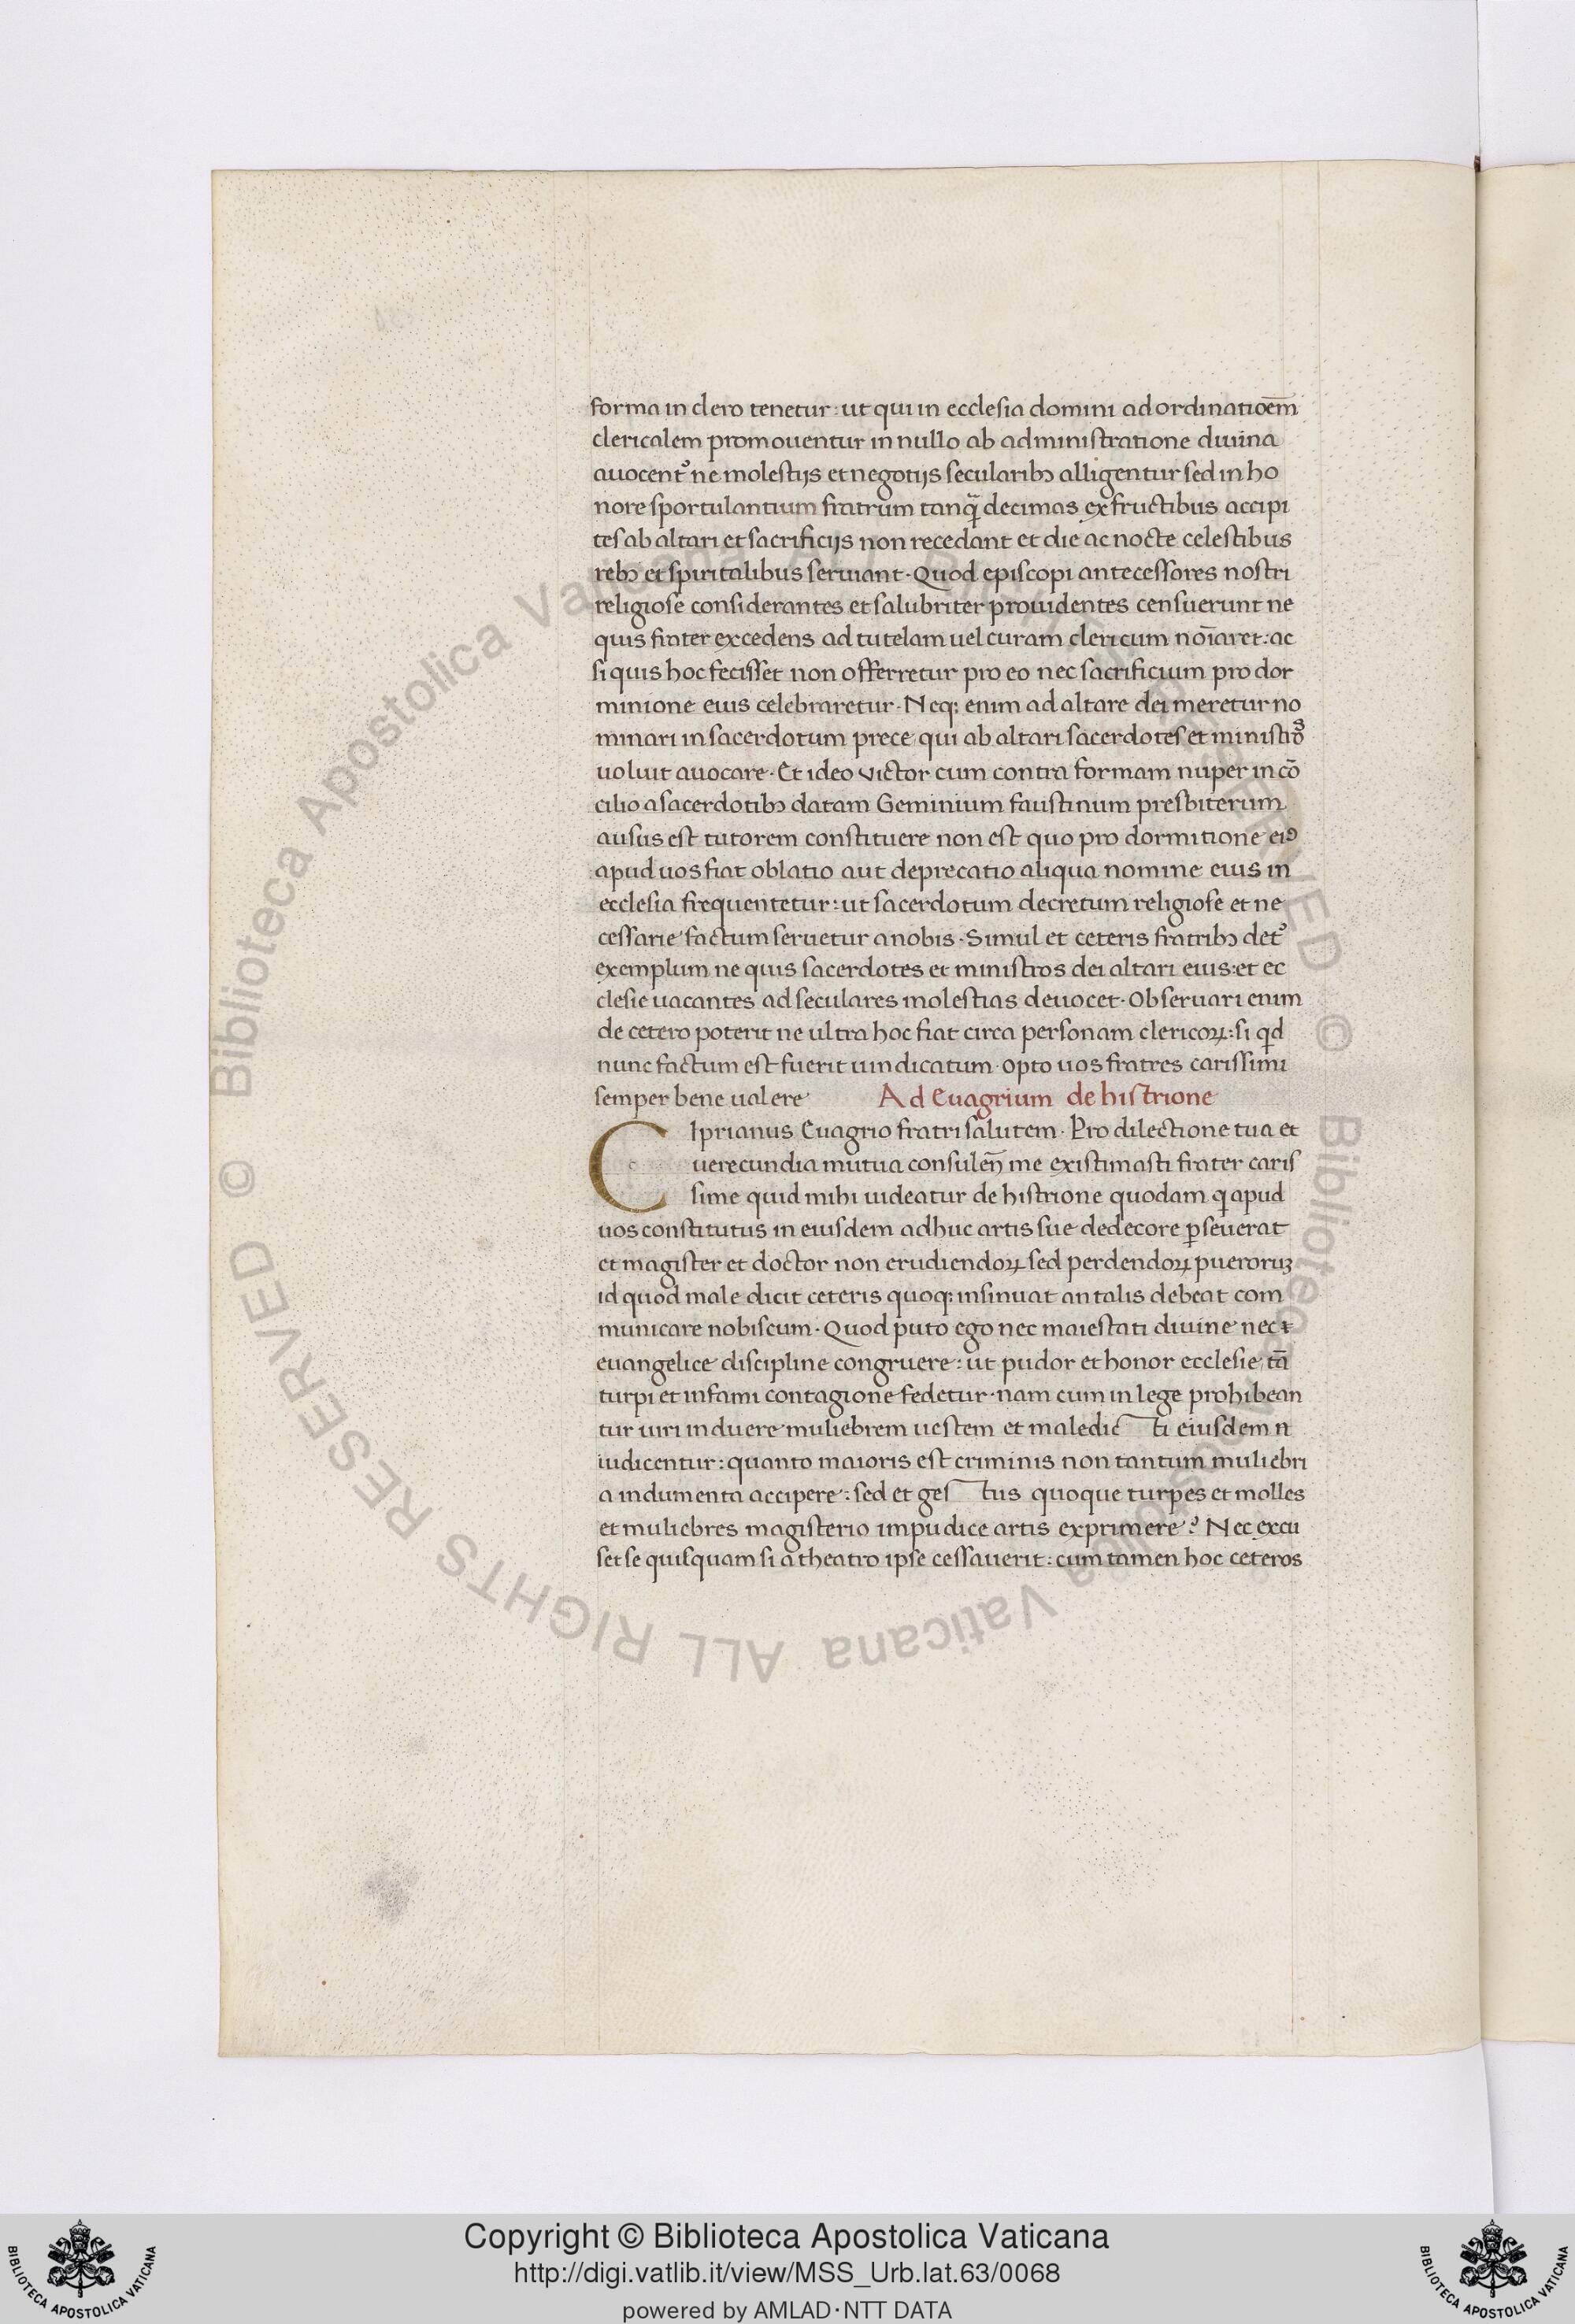 forma in clero tenetur: ut qui in ecclesia domini ad ordinatioēm
clericalem promouentur in nullo ab administratione diuina
auocentꝰ ne molestijs et negotijs secularibꝫ alligentur sed in ho
nore sportulantium fratrum tanq̄ decimas ex fructibus accipi
tes ab altari et sacrificijs non recedant et die ac nocte celestibus
rebꝫ et spiritalibus seruiant. Quod episcopi antecessores nostri
religiose considerantes et salubriter prouidentes censuerunt ne
quis frater excedens ad tutelam uel curam clericum noīaret: ac
si quis hoc fecisset non offerretur pro eo nec sacrificium pro dor
minione eius celebraretur. Neq: enim ad altare dei meretur no
minari in sacerdotum prece qui ab altari sacerdotes et ministros
uoluit auocare. Et ideo victor cum contra formam nuper in cō
cilio a sacerdotibꝫ datam Geminium faustinum presbiterum
ausus est tutorem constituere non est quo pro dormitione eiꝰ
apud uos fiat oblatio aut deprecatio aliqua nomine eius in
ecclesia frequentetur: ut sacerdotum decretum religiose et ne
cessarie factum seruetur a nobis. Simul et ceteris fratribꝫ detꝰ
exemplum ne quis sacerdotes et ministros dei altari eius: et ec
clesie uacantes ad seculares molestias deuocet. Obseruari enim
de cetero poterit ne ultra hoc fiat circa personam clericoꝝ: si qd
nunc factum est fuerit uindicatum. opto uos fratres carissimi
semper bene ualere Ad Euagrium de histrione
CIprianus Euagrio fratri salutem. Pro dilectione tua et
uerecundia mutua consulen̄ me existimasti frater caris
sime quid mihi uideatur de histrione quodam q apud
uos constitutus in eiusdem adhuc artis sue dedecore ꝑseuerat
et magister et doctor non erudiendoꝝ sed perdendoꝝ pueroruꝫ
id quod male dicit ceteris quoq: insinuat an talis debeat com
municare nobiscum. Quod puto ego nec maiestati diuine nec
euangelice discipline congruere: ut pudor et honor ecclesie tā
turpi et infami contagione fedetur. nam cum in lege prohibean
tur uiri induere muliebrem uestem et maledic ti eiusdem n
iudicentur: quanto maioris est criminis non tantum muliebri
a indumenta accipere: sed et ges tus quoque turpes et molles
et muliebres magisterio impudice artis exprimere? Nec excu
set se quisquam si a theatro ipse cessauerit: cum tamen hoc ceteros
Copyright © Biblioteca Apostolica Vaticana
http://digi.vatlib.it/view/MSS_Urb.lat.63/0068
powered by AMLAD·NTT DATA